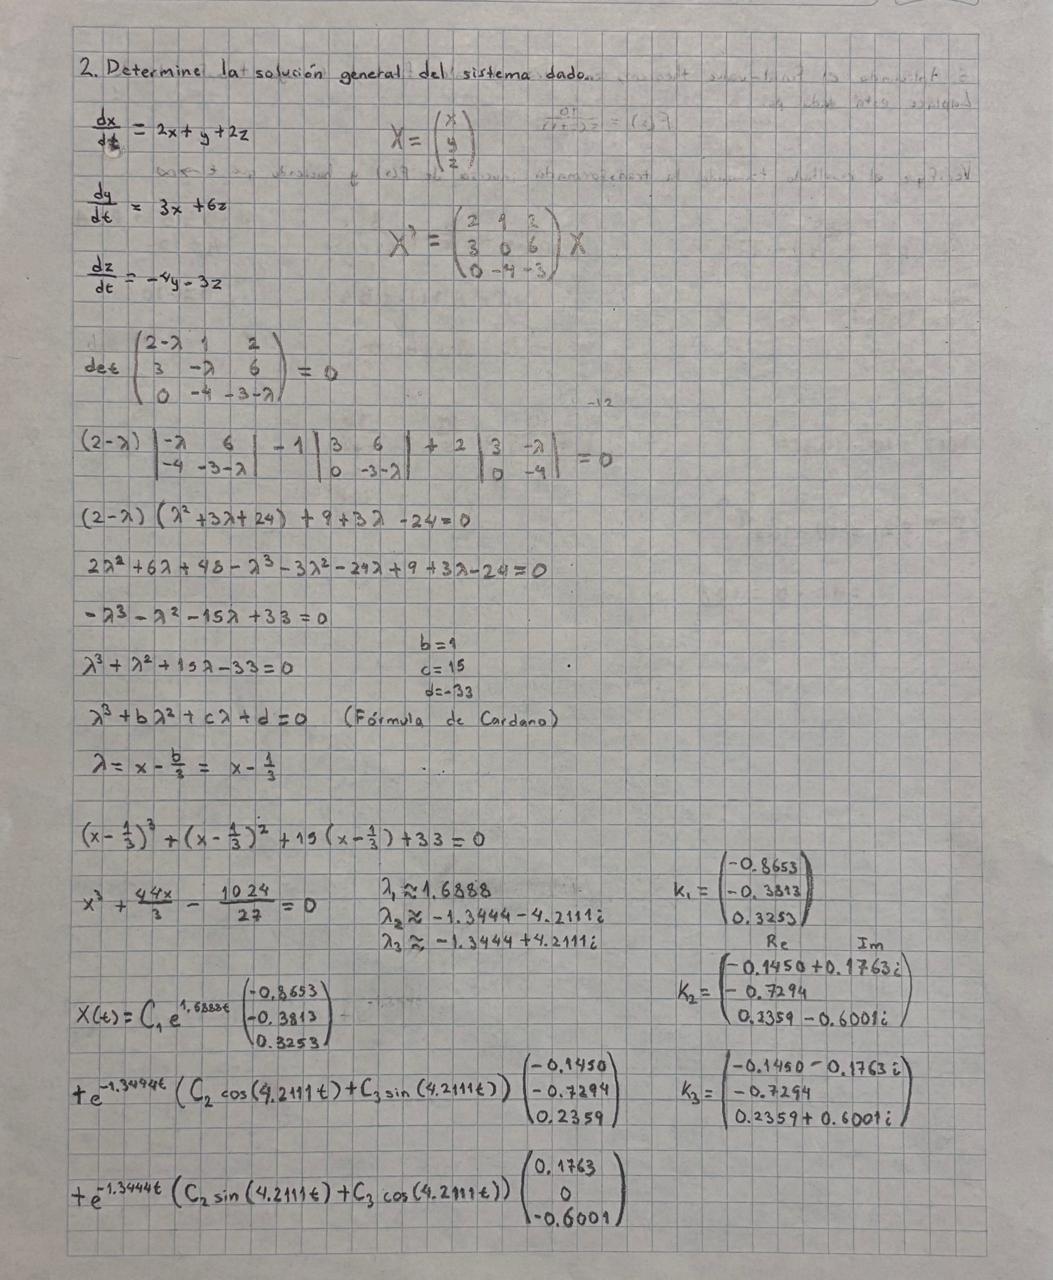 2. Determine la solución general del sistema dado.
dx/dt = 2x + y + 2z
X = (x y z)
dy/dt = 3x + 6z
X' = (2 1 2; 3 0 6; 0 -4 -3) X
dz/dt = -4y - 3z
det (2-λ 1 2; 3 -λ 6; 0 -4 -3-λ) = 0
-12
(2-λ) |-λ 6; -4 -3-λ| - 1 |3 6; 0 -3-λ| + 2 |3 -λ; 0 -4| = 0
(2-λ) (λ² + 3λ + 24) + 9 + 3λ - 24 = 0
2λ² + 6λ + 48 - λ³ - 3λ² - 24λ + 9 + 3λ - 24 = 0
-λ³ - λ² - 15λ + 33 = 0
b = 1
λ³ + λ² + 15λ - 33 = 0
c = 15
d = -33
λ³ + bλ² + cλ + d = 0 (Fórmula de Cardano)
λ = x - b/3 = x - 1/3
(x - 1/3)³ + (x - 1/3)² + 15 (x - 1/3) + 33 = 0
x³ + 44x/3 - 1024/27 = 0
λ₁ ≈ 1.6888
λ₂ ≈ -1.3444 - 4.2111i
λ₃ ≈ -1.3444 + 4.2111i
K₁ = (-0.8653; -0.3813; 0.3253)
Re Im
K₂ = (-0.1450 + 0.1763i; -0.7294; 0.2359 - 0.6001i)
K₃ = (-0.1450 - 0.1763i; -0.7294; 0.2359 + 0.6001i)
X(t) = C₁ e^1.6888t (-0.8653; -0.3813; 0.3253)
+ e^-1.3444t (C₂ cos(4.2111t) + C₃ sin(4.2111t)) (-0.1450; -0.7294; 0.2359)
+ e^-1.3444t (C₂ sin(4.2111t) + C₃ cos(4.2111t)) (0.1763; 0; -0.6001)